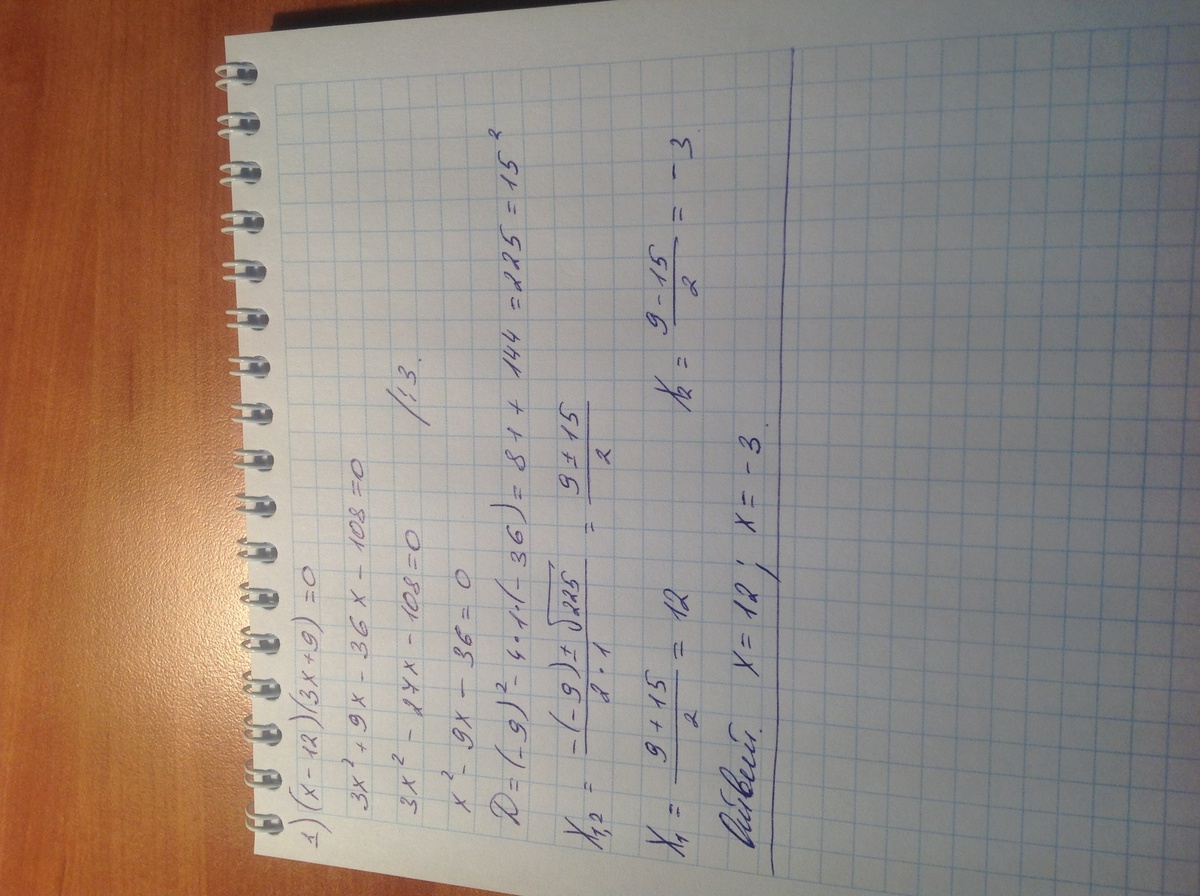 1) (x-12)(3x+9)=0
3x²+9x-36x-108=0
3x²-27x-108=0 /:3.
x²-9x-36=0
D=(-9)²-4·1·(-36)=81+144=225=15²
X₁,₂ = (-(-9)±√225)/(2·1) = (9±15)/2
X₁ = (9+15)/2 = 12 X₂ = (9-15)/2 = -3.
Ответ. x=12; x=-3.